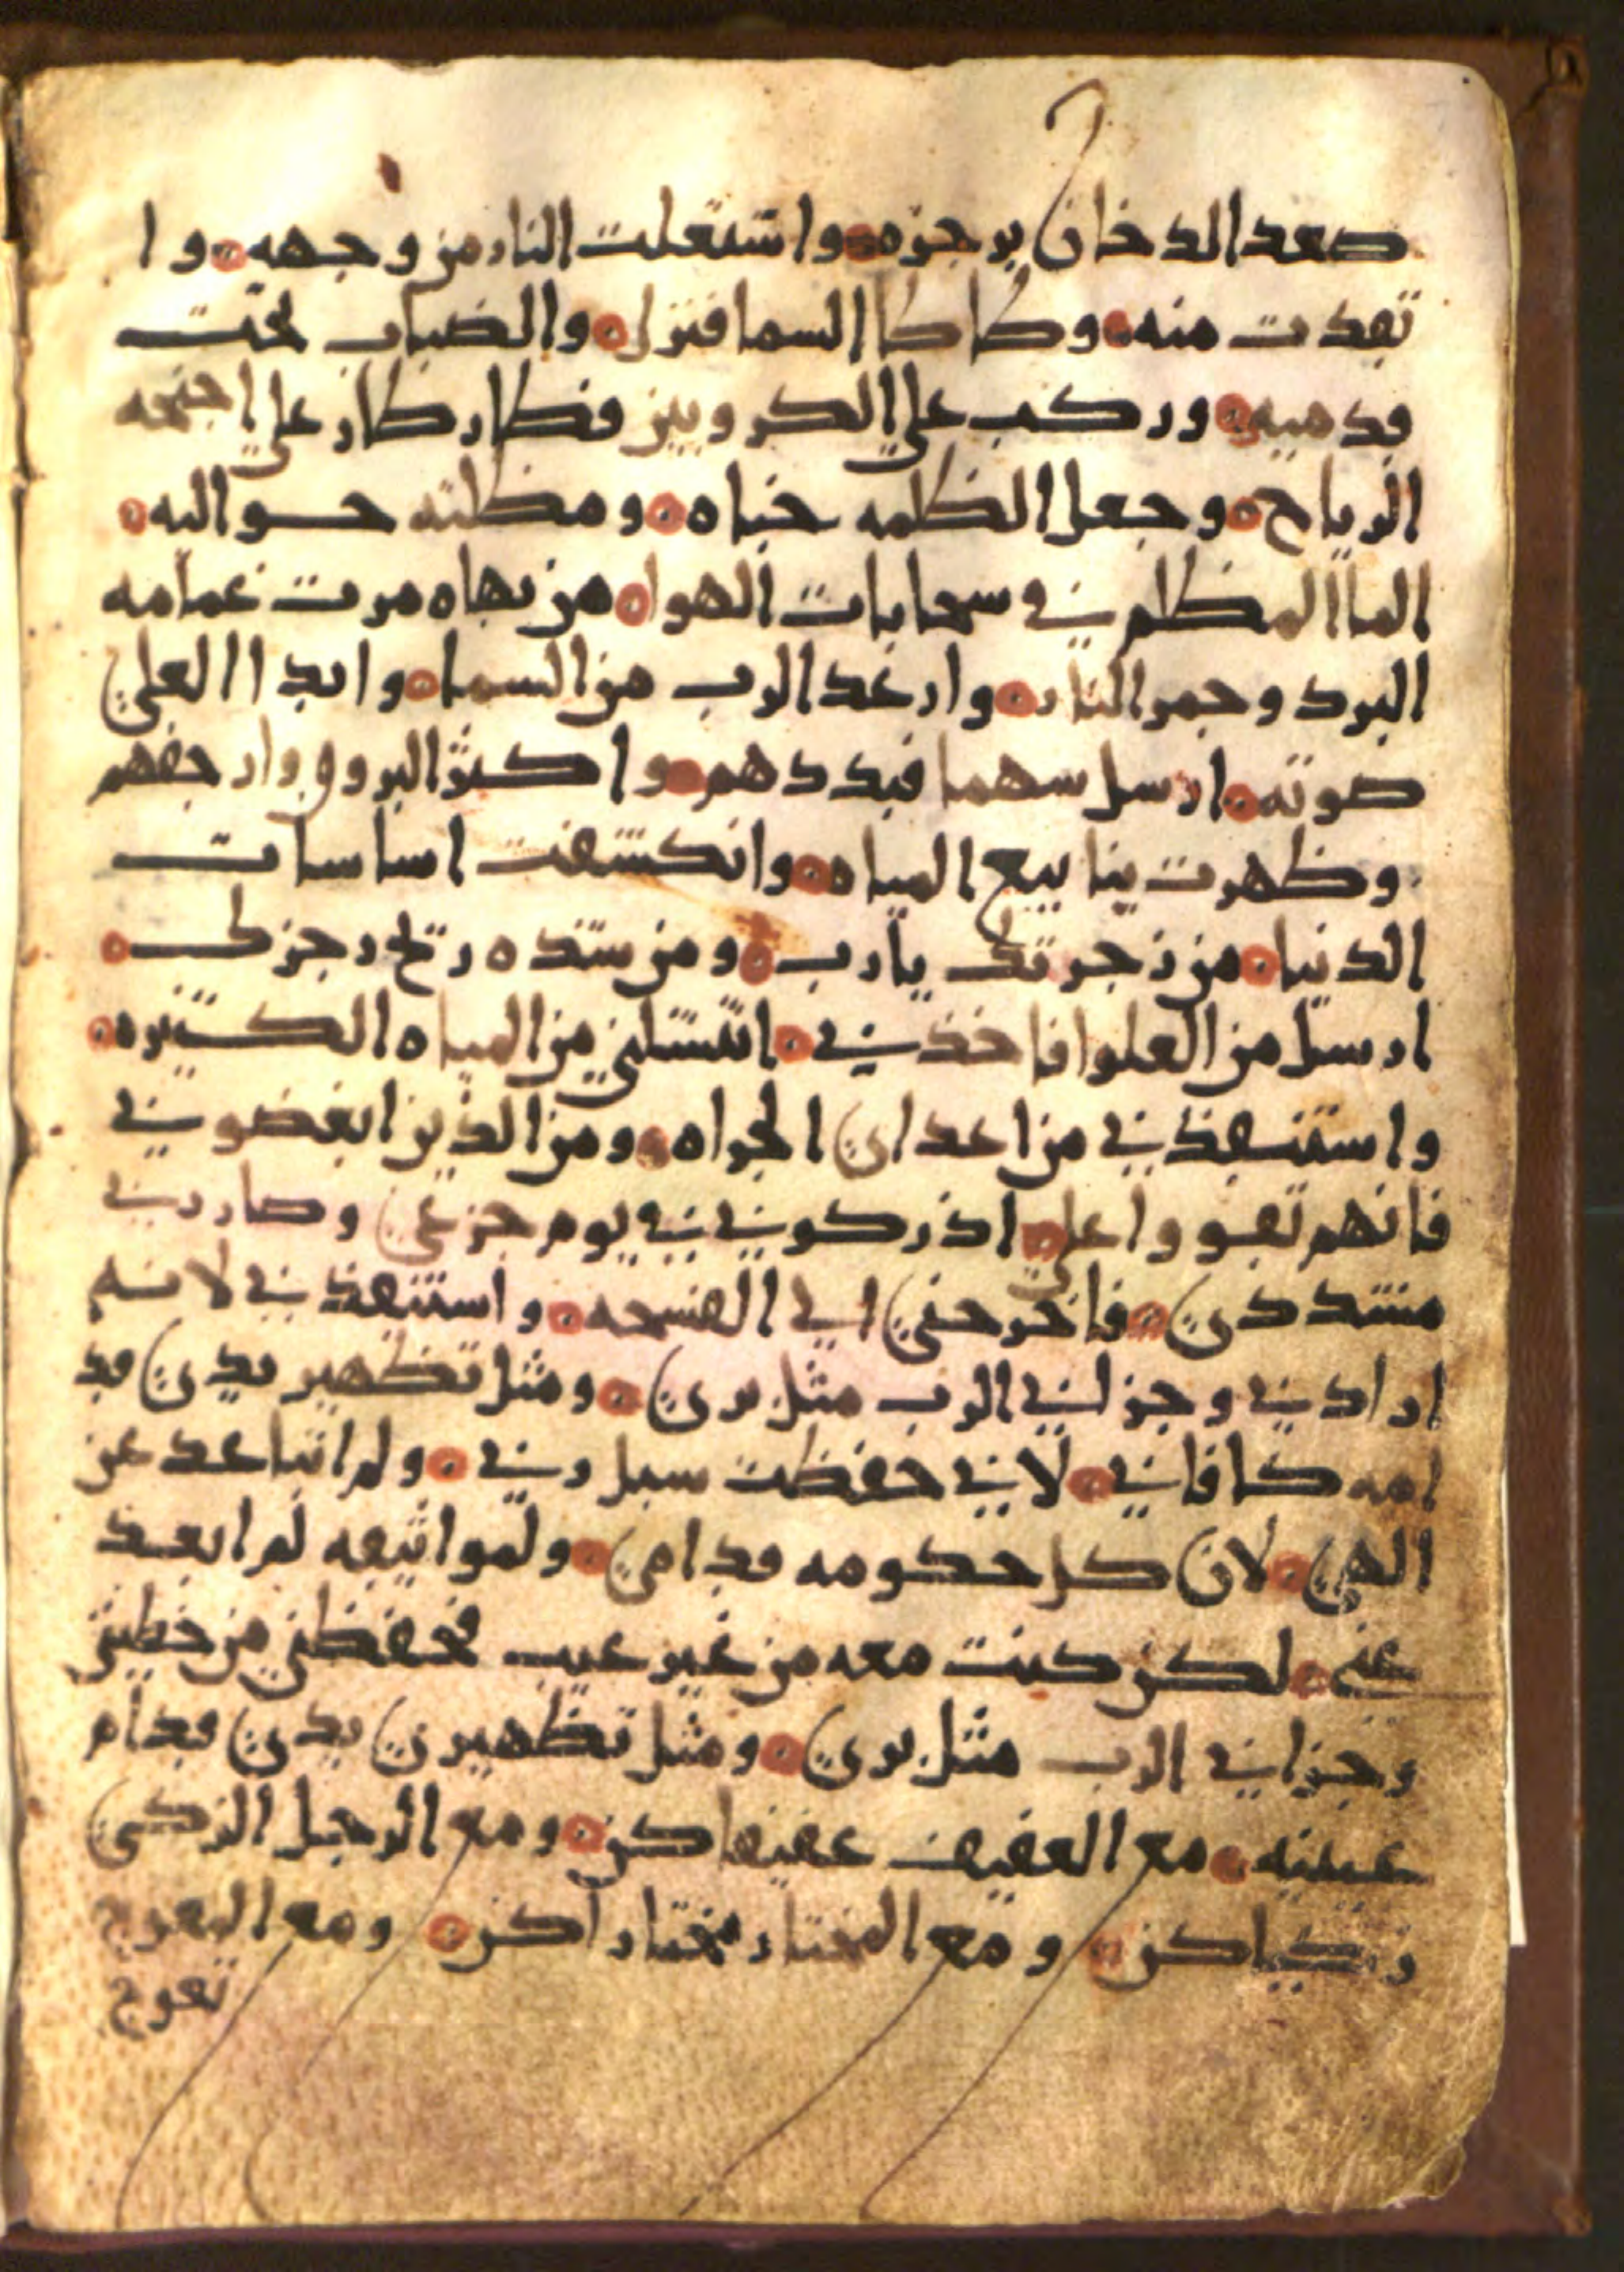 صعد الدخان برجزه وا شتعلت النار من وجهه وا
تقدت منه وطاطا السما فنزل والضباب تحت
قدميه وركب على الكروبين فطار طار على اجنحه
الرياح وجعل الظلمه خباه ومظلته حواليه
الما المظلم في سحابات الهوا من بهاه مرت غمامه
البرد وجمر النار وارعد الرب من السما وابدا العلي
صوته ارسل سهما فبددهم واكثر البروق وارجفهم
وظهرت ينابيع المياه وانكشفت اساسات
الدنيا من زجرتك يا رب ومن شده ريح رجزك
ارسل من العلو افاخذني انتشلني من المياه الكثيره
واستنقذني من اعداي الجراه ومن الذين ابغضوني
فانهم تقووا علي ادركوني في يوم جزعي وصار ربي
مشددي فاخرجني الى الفسحه واستنقذني لانه
ارادني وجزاني الرب مثل بري ومثل تطهير يدي قد
امه كافاني لاني حفظت سبل ربي ولم اتباعد عن
الهي لان كل حكومه قدامي ولمواثيقه لم ابعد
عني لكن كنت معه من غير عيب تحفظني من خطيتي
وجزاني الرب مثل بري ومثل تطهير يدي قدام
عينيه مع العفيف عفيفا كن ومع الرجل الزكي
زكيا كن ومع المختار مختارا كن ومع المعوج
تعوج